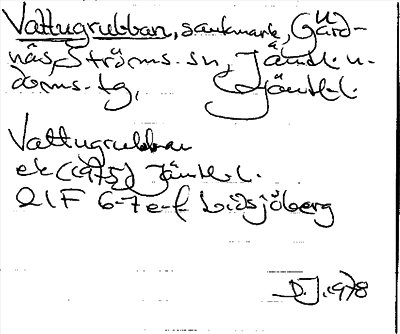 Vattugrubban, sankmark, Gärd-
näs, Ströms sn, Jämtl. n.
doms. tg, Jämtl. l.
Vattugrubban
ek (1975) Jämtl. l.
21F 6-7e-f Lidsjöberg
D.J. 1978